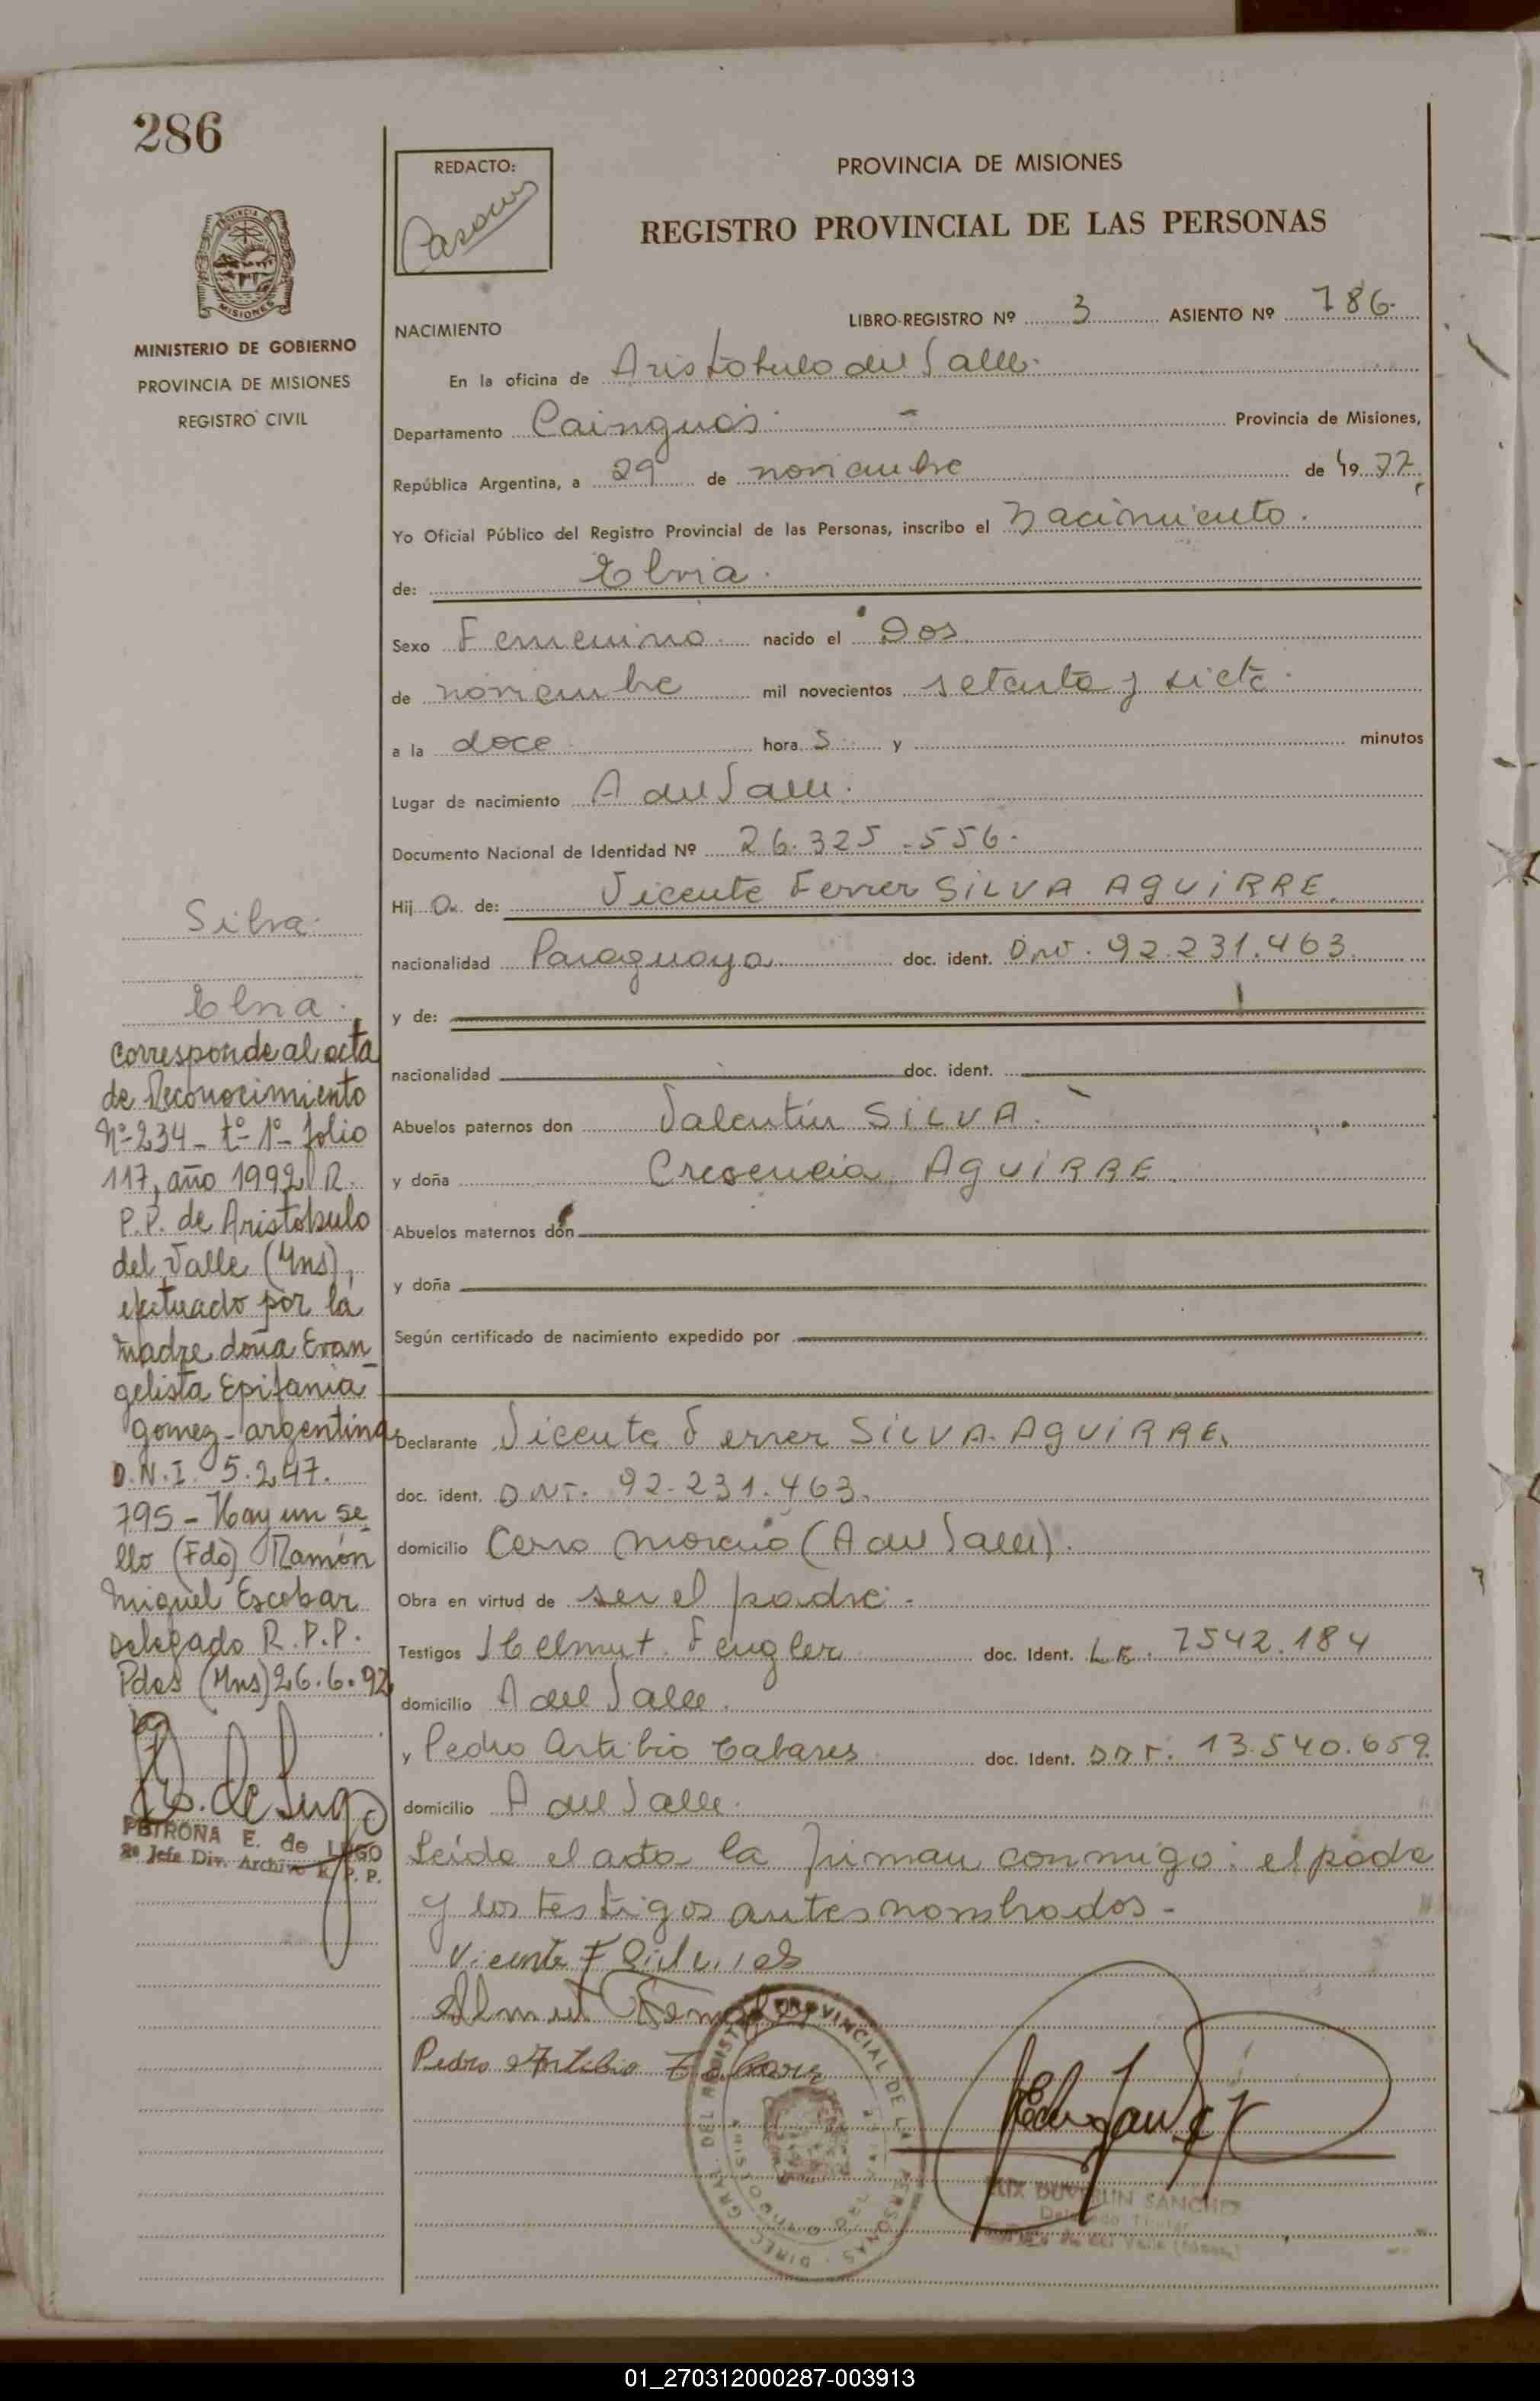 286
REDACTO:
PROVINCIA DE MISIONES
REGISTRO PROVINCIAL DE LAS PERSONAS
MISIONES
MINISTERIO DE GOBIERNO
PROVINCIA DE MISIONES
REGISTRO CIVIL
LIBRO-REGISTRO Nº 3 ASIENTO Nº 786.
NACIMIENTO
En la oficina de Aristobulo del Valle.
Departamento Cainguás. - Provincia de Misiones,
República Argentina, a 29 de noviembre de 1977,
Yo Oficial Público del Registro Provincial de las Personas, inscribo el Nacimiento.
de: Elvia.
Sexo Femenino. nacido el Dos
de noviembre mil novecientos setenta y siete.
a la doce hora s y minutos
Lugar de nacimiento A del Valle.
Documento Nacional de Identidad Nº 26.325.556.
Hij a. de: Vicente Ferrer SILVA AGUIRRE.
nacionalidad Paraguaya doc. ident. DNI. 92.231.463.
y de:
nacionalidad doc. ident.
Abuelos paternos don Valentín SILVA.
y doña Cresencia AGUIRRE.
Abuelos maternos don
y doña
Según certificado de nacimiento expedido por
Declarante Vicente Ferrer SILVA AGUIRRE.
doc. ident. DNI. 92.231.463.
domicilio Cerro Moreno (A del Valle).
Obra en virtud de ser el padre.
Testigos Helmut Fengler doc. Ident. L.E. 7542.184
domicilio A del Valle.
y Pedro Artibio Tabares doc. Ident. DNI. 13.540.659.
domicilio A del Valle.
Leída el acta la firman conmigo: el padre
y los testigos antes nombrados -
Vicente F
Pedro Artibio
Silva.
Elvia.
Corresponde al acta
de Reconocimiento
Nº 234 - tº 1º - folio
117, año 1992, R.
P.P. de Aristobulo
del Valle (Mns),
efectuado por la
madre doña Evan
gelista Epifania
Gomez - argentina
D.N.I. 5.247.
795 - Hay un se
llo (Fdo) Ramón
Miguel Escobar
Delegado R.P.P.
Pdas (Mns) 26.6.92
PETRONA E. de LUGO
2º Jefe Div. Archivo R. P. P.
SANCHEZ
Delegado Titular
01_270312000287-003913